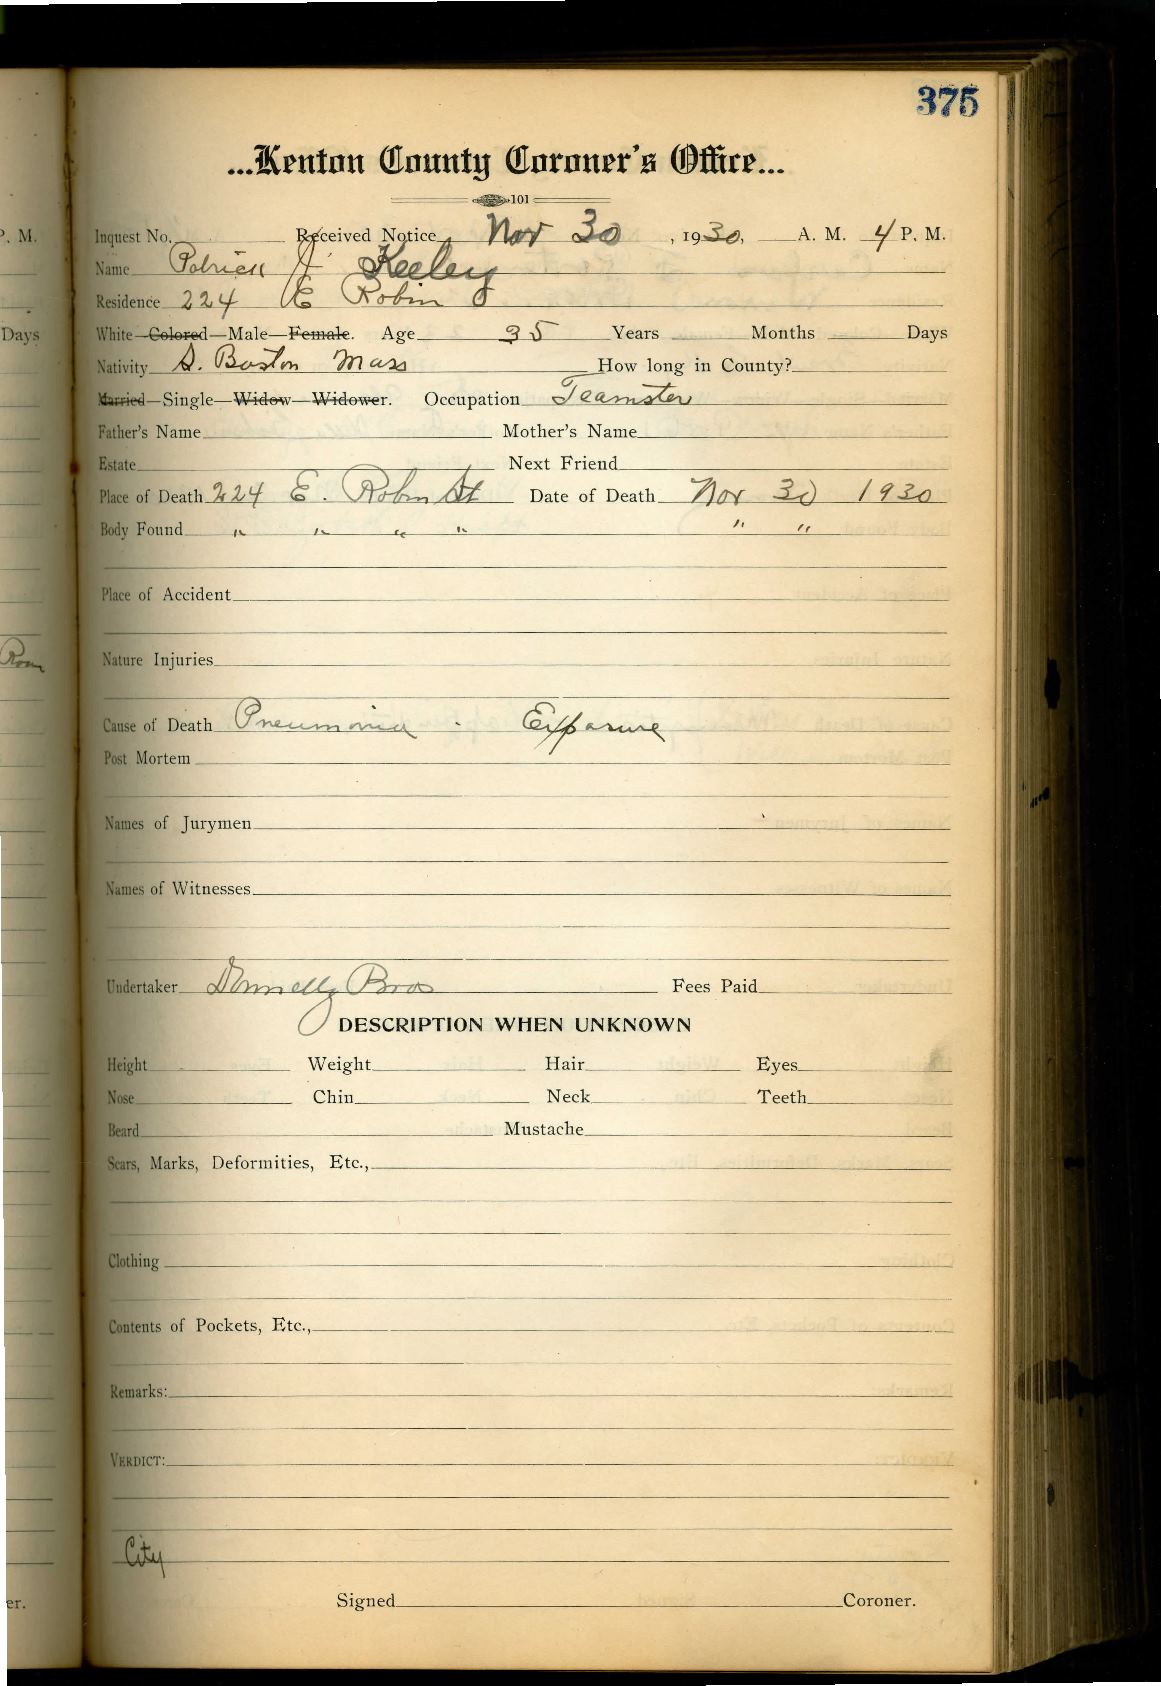 375
...Kenton County Coroner's Office...
101
P. M. Inquest No. Received Notice Nov 30, 1930, A. M. 4 P. M.
Name Patrick J. Keeley
Residence 224 E Robin
Days White—Colored—Male—Female. Age 35 Years Months Days
Nativity S. Boston Mass How long in County?
Married—Single—Widow—Widower. Occupation Teamster
Father's Name Mother's Name
Estate Next Friend
Place of Death 224 E. Robin St Date of Death Nov 30 1930
Body Found " " " " " "
Place of Accident
Nature Injuries
Cause of Death Pneumonia - Exposure
Post Mortem
Names of Jurymen
Names of Witnesses
Undertaker Donnelly Bros Fees Paid
DESCRIPTION WHEN UNKNOWN
Height Weight Hair Eyes
Nose Chin Neck Teeth
Beard Mustache
Scars, Marks, Deformities, Etc.,
Clothing
Contents of Pockets, Etc.,
Remarks:
VERDICT:
City
er. Signed Coroner.